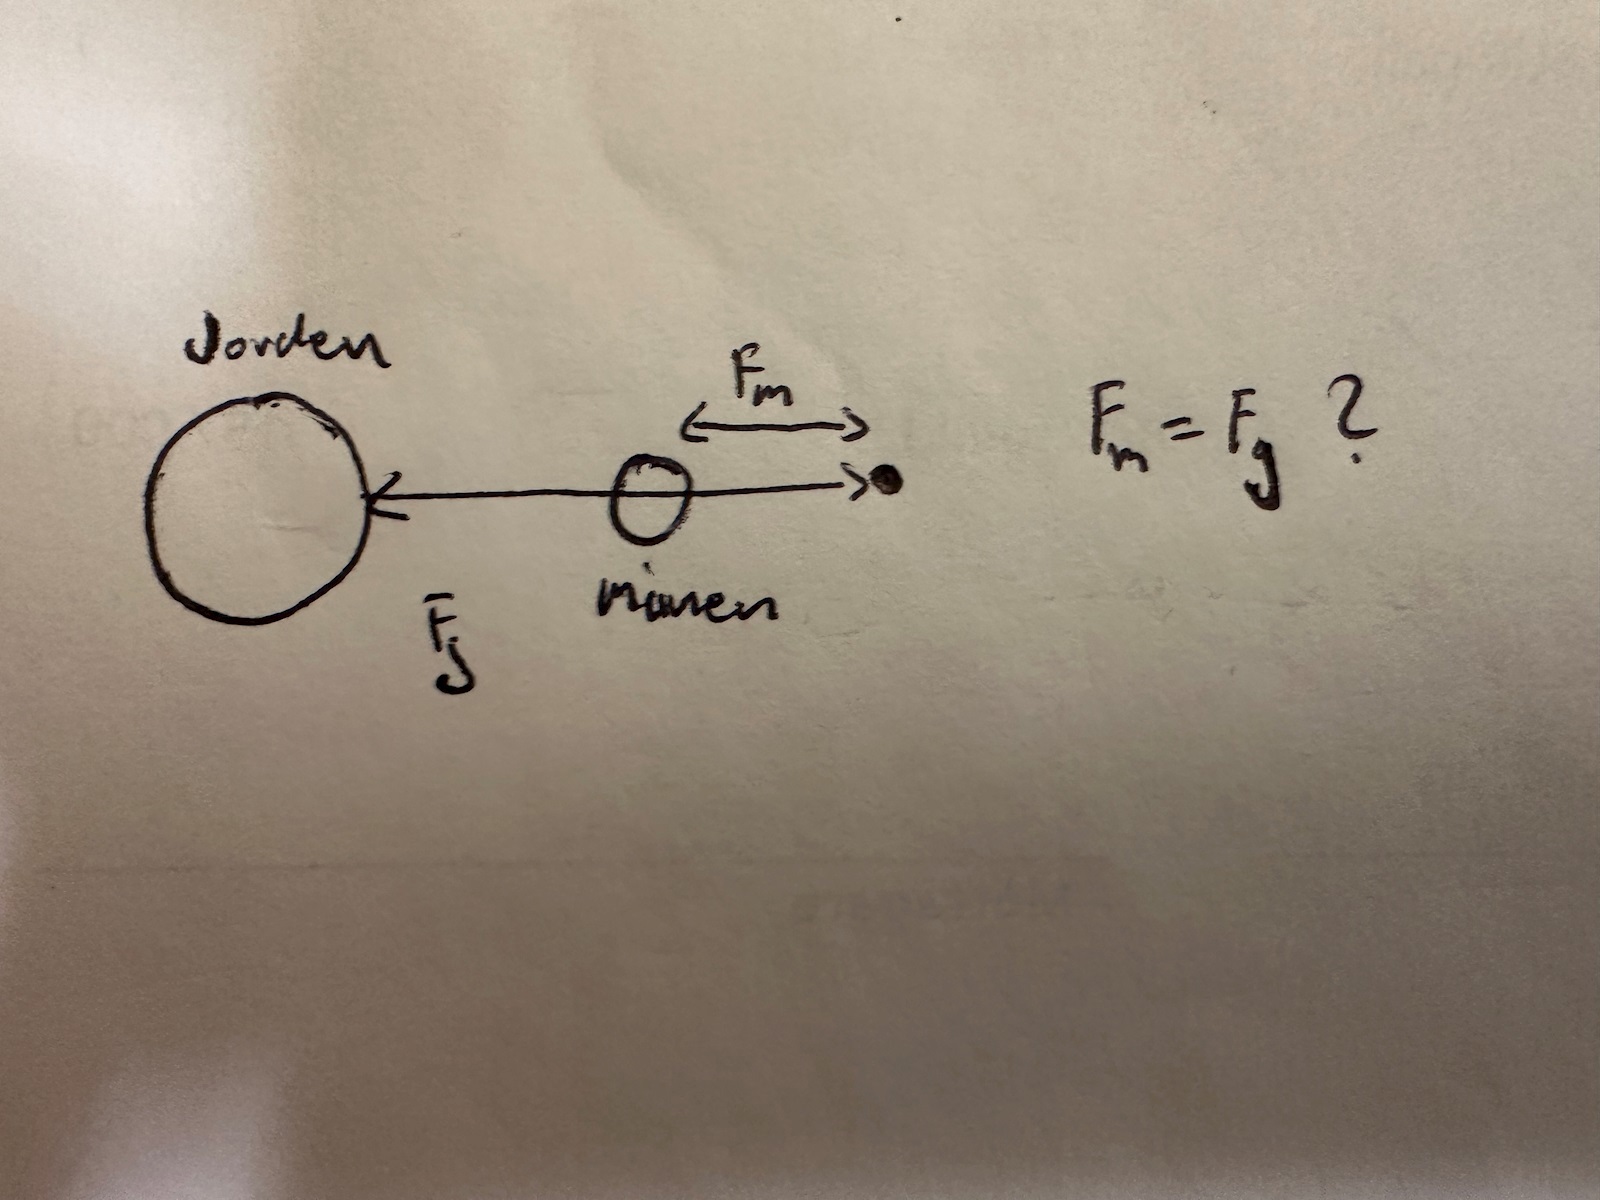 Jorden
Fm
Fm = Fg ?
månen
Fj